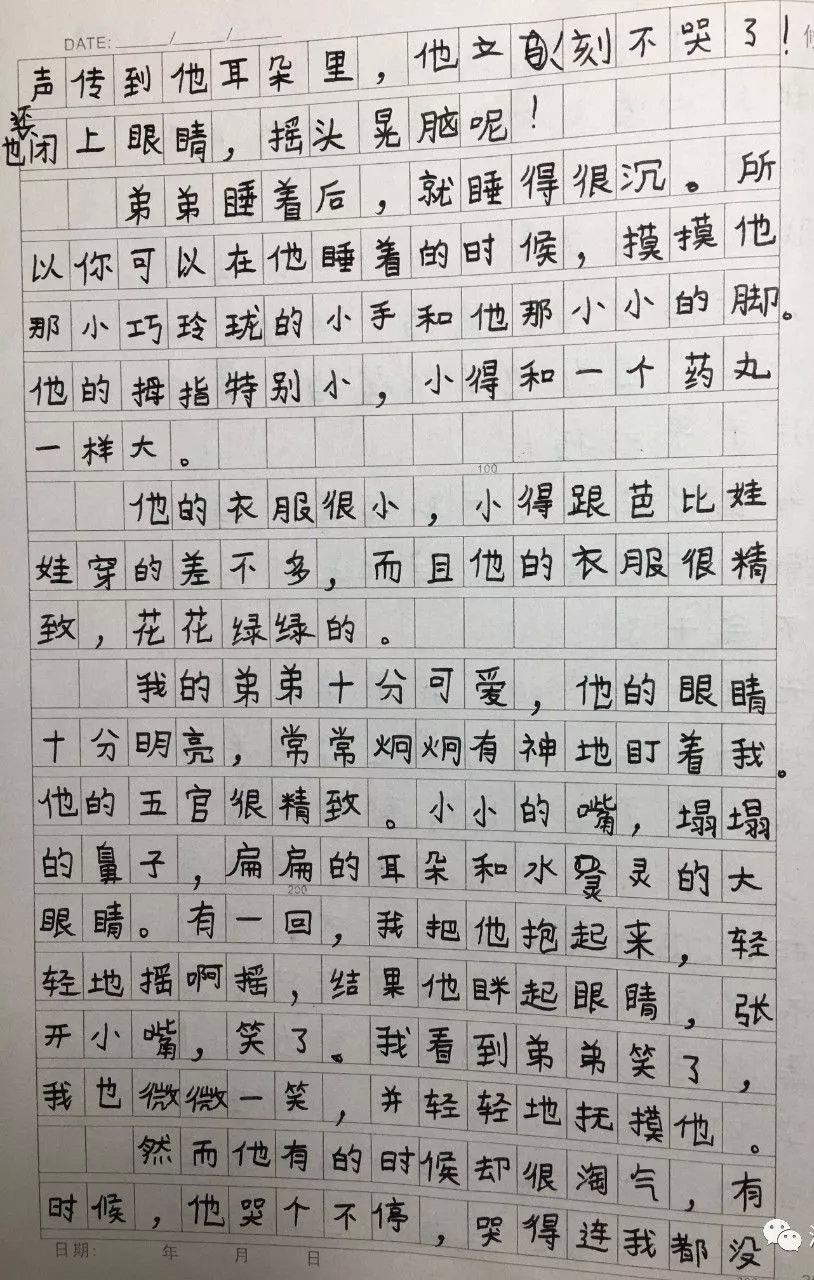 DATE:
声传到他耳朵里，他立刻不哭了！
还
也闭上眼睛，摇头晃脑呢！
弟弟睡着后，就睡得很沉。所
以你可以在他睡着的时候，摸摸他
那小巧玲珑的小手和他那小小的脚。
他的拇指特别小，小得和一个药丸
一样大。
100
他的衣服很小，小得跟芭比娃
娃穿的差不多，而且他的衣服很精
致，花花绿绿的。
我的弟弟十分可爱，他的眼睛
十分明亮，常常炯炯有神地盯着我。
他的五官很精致。小小的嘴，塌塌
的鼻子，扁扁的耳朵和水灵灵的大
200
眼睛。有一回，我把他抱起来，轻
轻地摇啊摇，结果他眯起眼睛，张
开小嘴，笑了。我看到弟弟笑了，
我也微微一笑，并轻轻地抚摸他。
然而他有的时候却很淘气，有
时候，他哭个不停，哭得连我都没
日期： 年 月 日